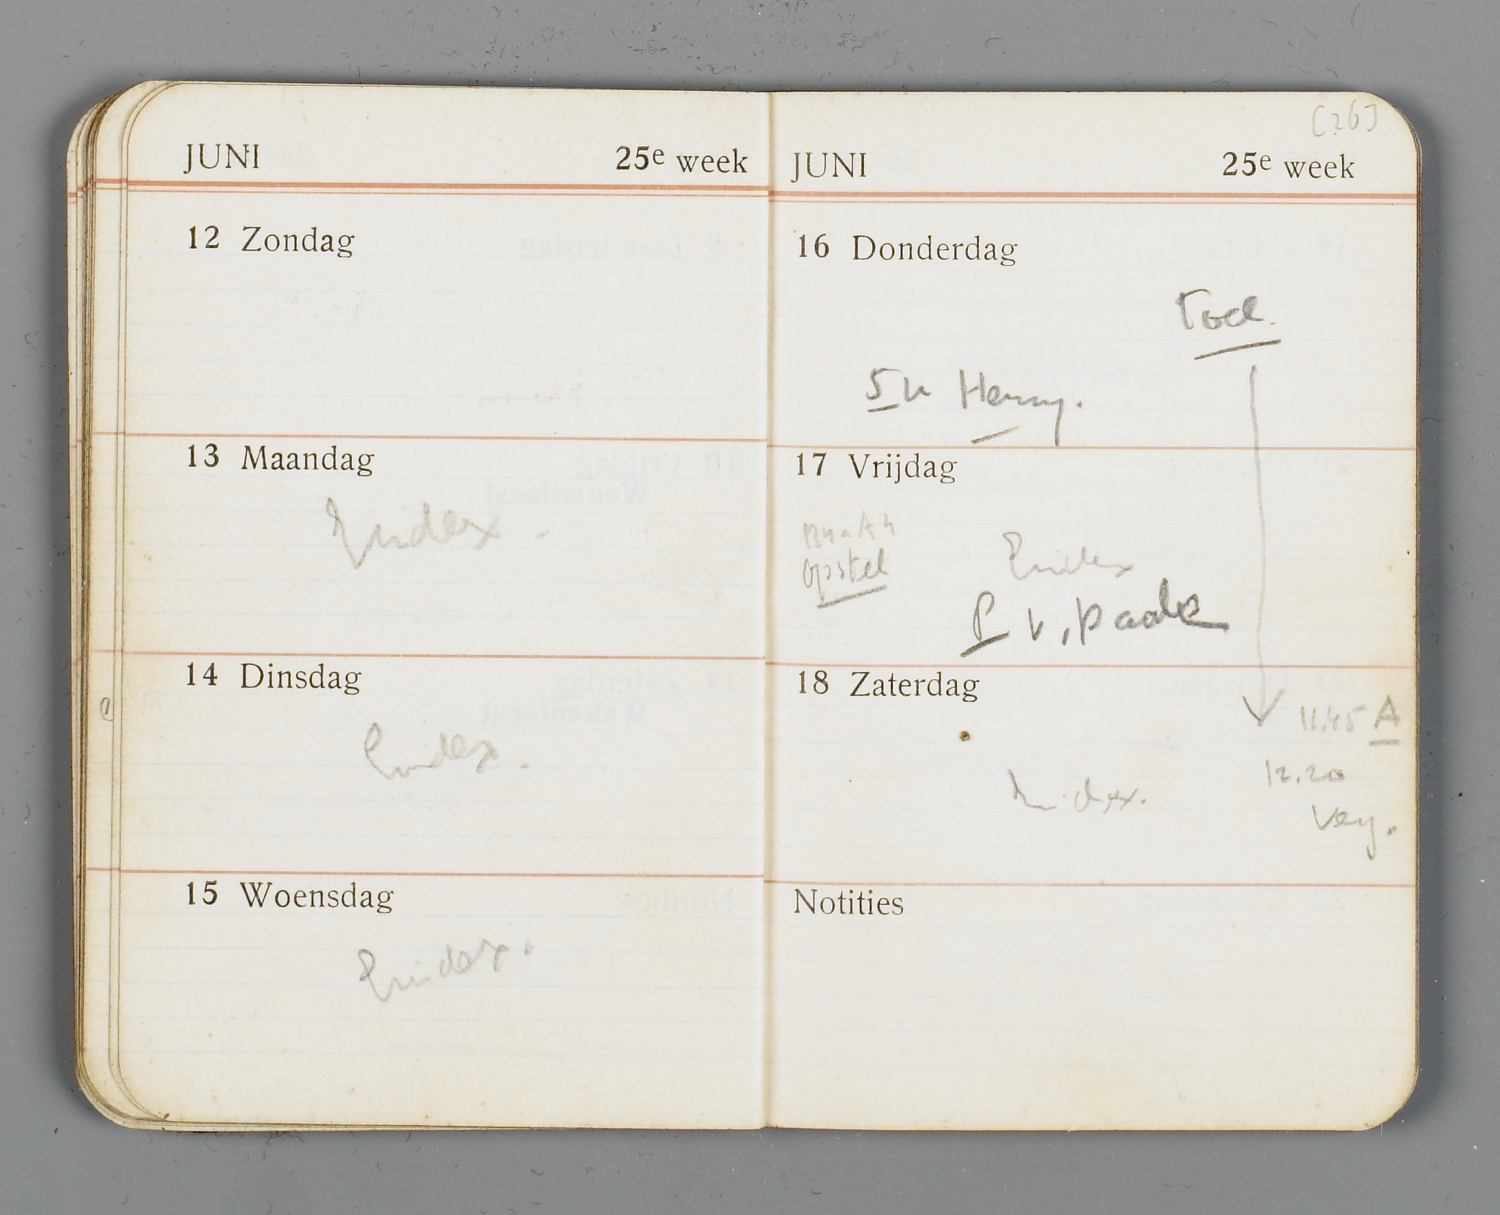 JUNI 25e week
12 Zondag
13 Maandag
Index.
14 Dinsdag
Index.
15 Woensdag
Index.
[26]
JUNI 25e week
16 Donderdag
5 u Henny.
17 Vrijdag
opstel
Index
P v. paals
18 Zaterdag
11.45 A
12.20
Index.
Notities